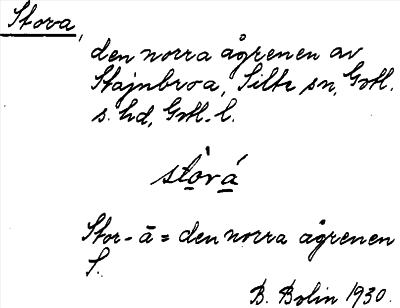 Stora,
den norra ågrenen av
Stajnbroa, Silte sn, Gotl.
s. hd, Gotl. l.
stòrá
Stor-å = den norra ågrenen
S.
B. Bolin 1930.